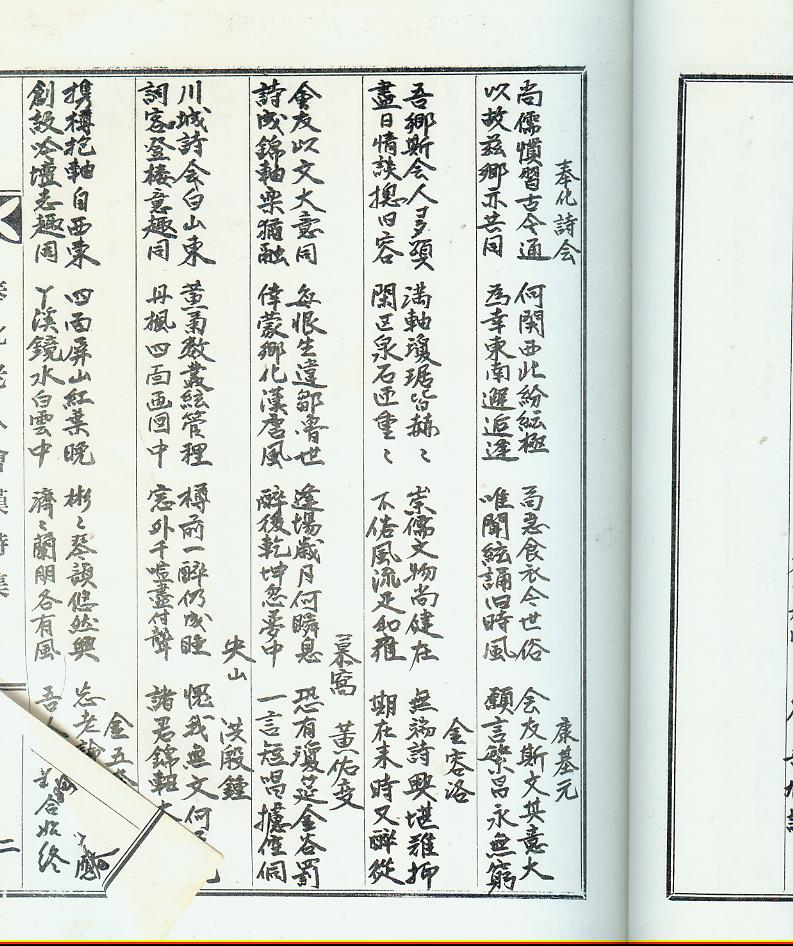 奉化詩会 康基元
尚儒慣習古今通 何関西北紛紜極 苟忍食衣今世俗 会友斯文其意大
以故玆鄕亦共同 爲幸東南邂逅逢 唯聞絃誦旧時風 願言繁昌永無窮
金容洛
吾鄕斯会人多頭 满軸瓊琚皆赫〻 崇儒文物尚健在 無端詩興堪難抑
盡日情談摠旧容 閑区泉石匝重〻 不俗風流足和雍 期在来時又醉從
慕窩 黃佑夏
會友以文大意同 每恨生違鄒魯世 逢場歲月何瞬息 恐有瓊筵金谷罰
詩成錦軸樂猶融 偉蒙鄕化漢唐風 醉後乾坤忽夢中 一言短唱攄倥侗
央山 洪殷鍾
川城詩会白山東 黃菊数叢絃管裡 樽前一醉仍成睡 愧我無文何
詞客登楼意趣同 丹楓四面画図中 窓外千喧盡付聾 諸君錦軸
金五
携樽抱軸自西東 四面屏山紅葉晩 彬〻琴韻悠然興 忘老
創設吟壇志趣同 丫溪鏡水白雲中 濟〻蘭朋各有風 吾 合始終
會漢詩集
二